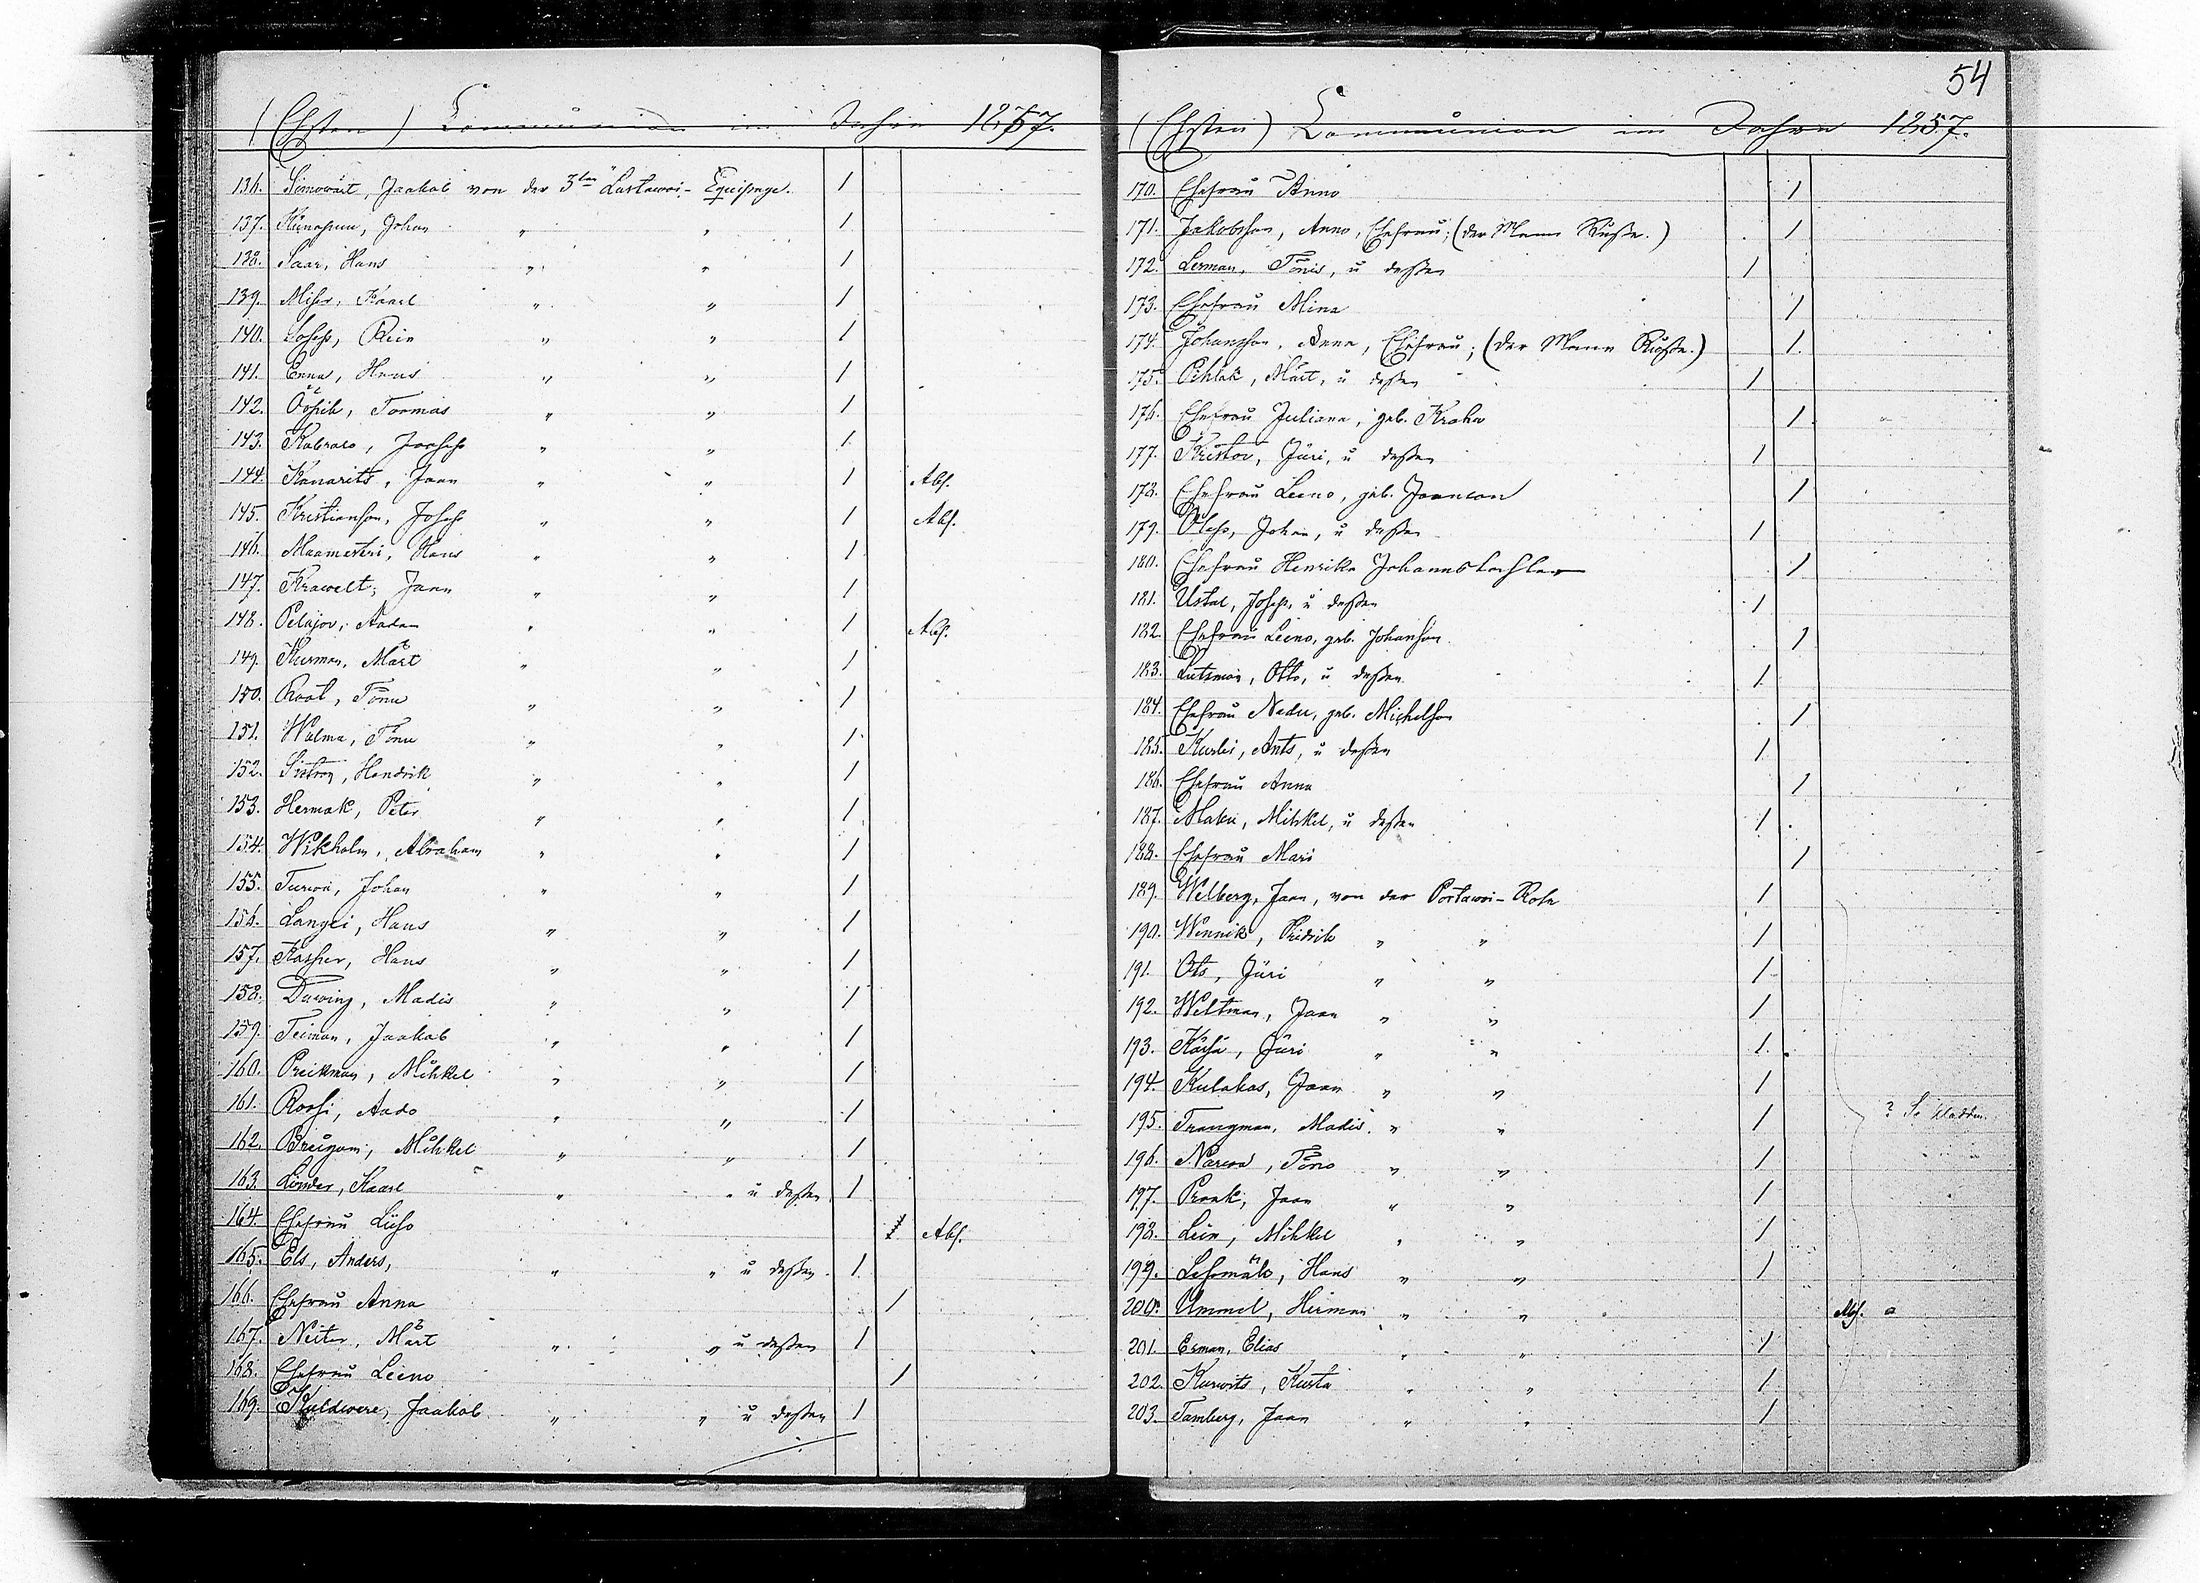 (Ehsten) Communion im Jahre 1857.
136. Simowart, Jaakob von der 3ten Lastawoi-Equipage. 1
137. Johan " " 1
138. Saar, Hans " " 1
139. Kaarl " " 1
140. Joseph, Rein " " 1
141. Enna, Hans " " 1
142. Ööpik, Toomas " " 1
143. Joseph " " 1
144. Kanarits, Jaan " " 1 Abs.
145. Kristianson, Joseph " " 1 Abs.
146. Maamesteri, Hans " " 1
147. Krawelt, Jaan " " 1
148. Pelajov, Aadam " " 1 Abs.
149. Kurman, Märt " " 1
150. Root, Tõnu " " 1
151. Walma, Tõnu " " 1
152. Hendrik " " 1
153. Hermak, Peter " " 1
154. Wikholm, Abraham " " 1
155. Johan " " 1
156. Langei, Hans " " 1
157. Kasper, Hans " " 1
158. Duwing, Madis " " 1
159. Teiman, Jaakob " " 1
160. Preikman, Mihkel " " 1
161. Roosi, Aado " " 1
162. Breugam, Mihkel " " 1
163. Linder, Kaarl " " u dessen 1
164. Ehefrau Liiso 1 Abs.
165. Els, Anders, " " u dessen 1
166. Ehefrau Anna 1
167. Neiter, Märt " " u dessen 1
168. Ehefrau Leeno 1
169. Kuldwere, Jaakob " " u dessen 1
54
(Ehsten) Communion im Jahre 1857.
170. Ehefrau Anno 1
171. Jakobson, Anno, Ehefrau; (der Mann Russe.) 1
172. Lerman, Tõnis, u dessen 1
173. Ehefrau Mina 1
174. Johanson, Anna, Ehefrau; (der Mann Russe.) 1
175. Pihlak, Märt, u dessen 1
176. Ehefrau Juliana, geb. Krahw 1
177. Kristov, Jüri, u dessen 1
178. Ehefrau Leeno, geb. Jaanson 1
179. Johan, u dessen 1
180. Ehefrau Henrika Johannstochter 1
181. Ustal, Josep, u dessen 1
182. Ehefrau Leeno, geb. Johanson 1
183. Lutsman, Otto, u dessen 1
184. Ehefrau Nadu, geb. Michelson 1
185. Kurbi, Ants, u dessen 1
186. Ehefrau Anna 1
187. Maku, Mihkel, u dessen 1
188. Ehefrau Mari 1
189. Welberg, Jaan, von der Portawoi-Rote 1
190. Wennik, Fridrik " " 1
191. Ots, Jüri " " 1
192. Weltman, Jaan " " 1
193. Kärsä, Jüri " " 1
194. Kulakas, Jaan " " 1
195. Trangman, Madis " " 1
196. Narwa, Tõno " " 1
197. Prook, Jaan " " 1
198. Lein, Mihkel " " 1
199. Hans " " 1
200. Ummel, Herman " " Abs. a
201. Erman, Elias " " 1
202. Kurwits, Kusta " " 1
203. Tamberg, Jaan " " 1